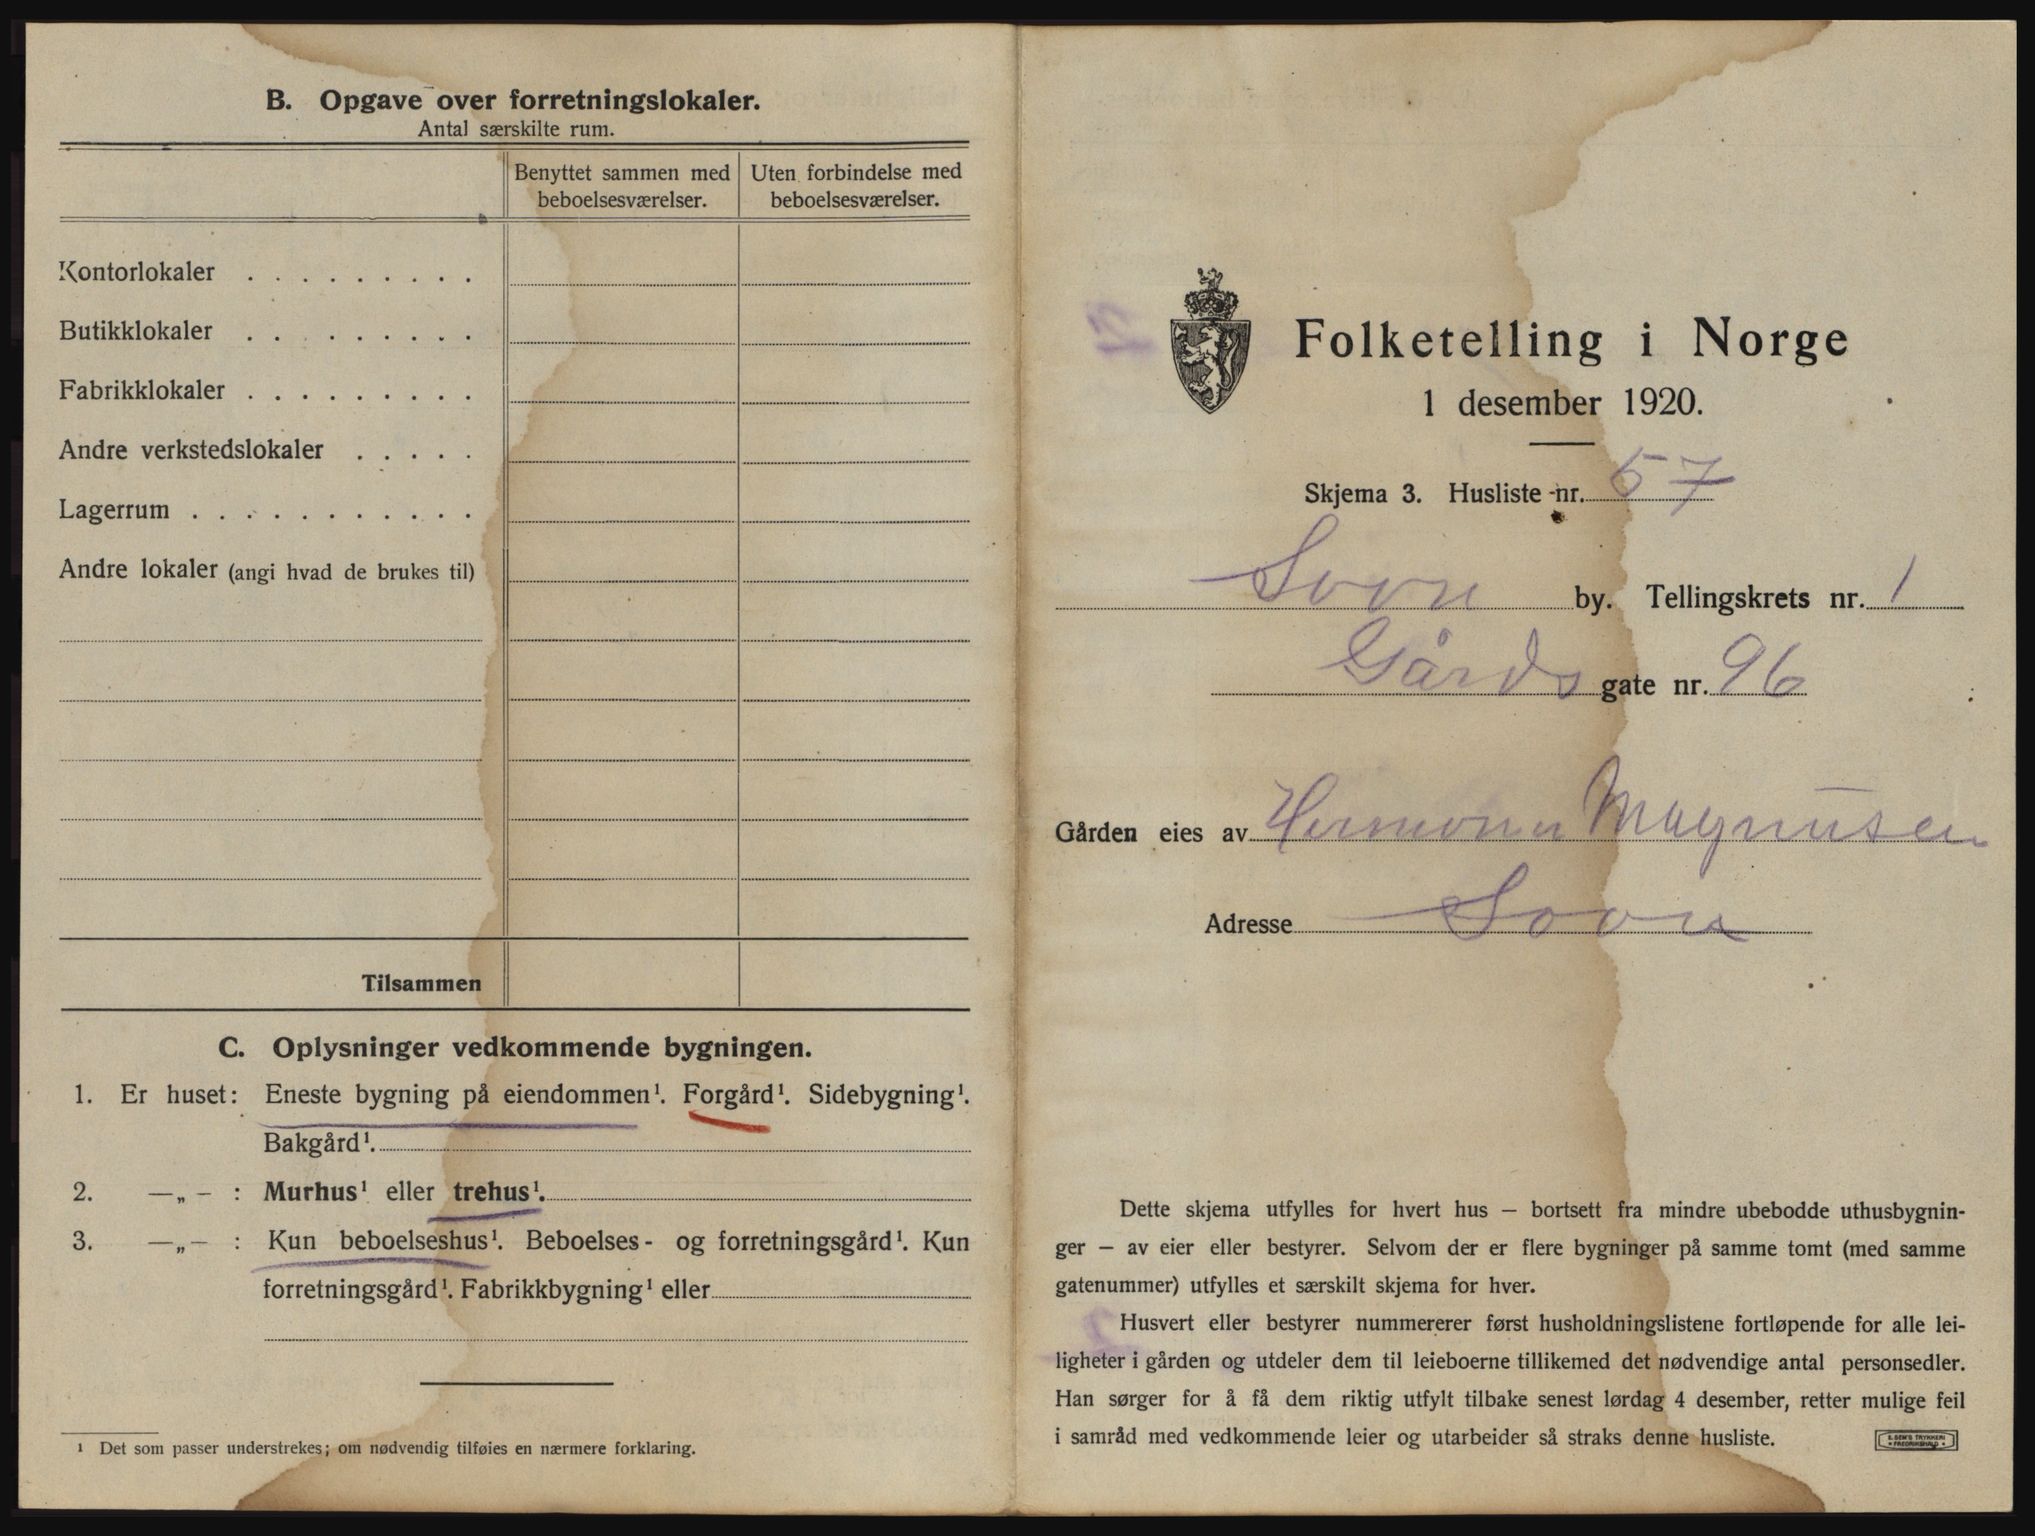 B. Opgave over forretningslokaler.
Antal særskilte rum.
Benyttet sammen med beboelsesværelser.
Uten forbindelse med beboelsesværelser.
Kontorlokaler . . . . . . . . .
Butikklokaler . . . . . . . .
Fabrikklokaler . . . . . . . . .
Andre verkstedslokaler . . . . .
Lagerrum . . . . . . . . . . .
Andre lokaler (angi hvad de brukes til)
Tilsammen
C. Oplysninger vedkommende bygningen.
1. Er huset: Eneste bygning på eiendommen¹. Forgård¹. Sidebygning¹.
Bakgård¹.
2. —„— : Murhus¹ eller trehus¹.
3. —„— : Kun beboelseshus¹. Beboelses- og forretningsgård¹. Kun
forretningsgård¹. Fabrikkbygning¹ eller
¹ Det som passer understrekes; om nødvendig tilføies en nærmere forklaring.
Folketelling i Norge
1 desember 1920.
Skjema 3. Husliste nr. 57
Soon by. Tellingskrets nr. 1
Gårds gate nr. 96
Gården eies av Magnusen
Adresse Soon
Dette skjema utfylles for hvert hus — bortsett fra mindre ubebodde uthusbygnin-
ger — av eier eller bestyrer. Selvom der er flere bygninger på samme tomt (med samme
gatenummer) utfylles et særskilt skjema for hver.
Husvert eller bestyrer nummererer først husholdningslistene fortløpende for alle lei-
ligheter i gården og utdeler dem til leieboerne tillikemed det nødvendige antal personsedler.
Han sørger for å få dem riktig utfylt tilbake senest lørdag 4 desember, retter mulige feil
i samråd med vedkommende leier og utarbeider så straks denne husliste.
E. SEM'S TRYKKERI
FREDRIKSHALD